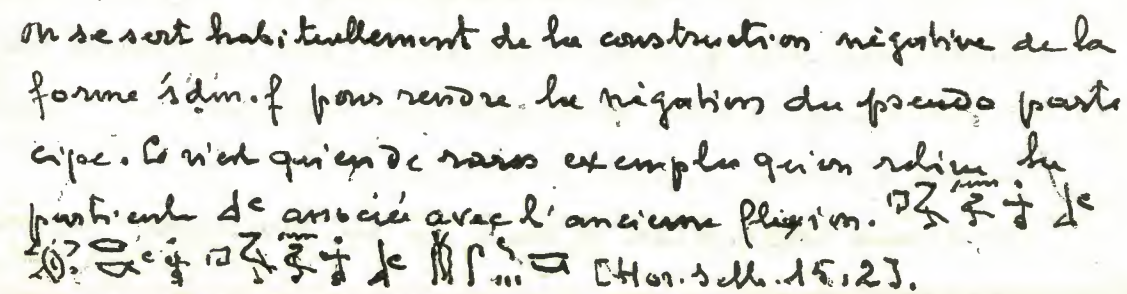 on se sert habituellement de la construction négative de la
forme śdm.f pour rendre la négation du pseudo parti
cipe. Ce n'est qu'en de rares exemples qu'on relève la
particule associée avec l'ancienne flexion.
[Hor. Seth. 15,2].